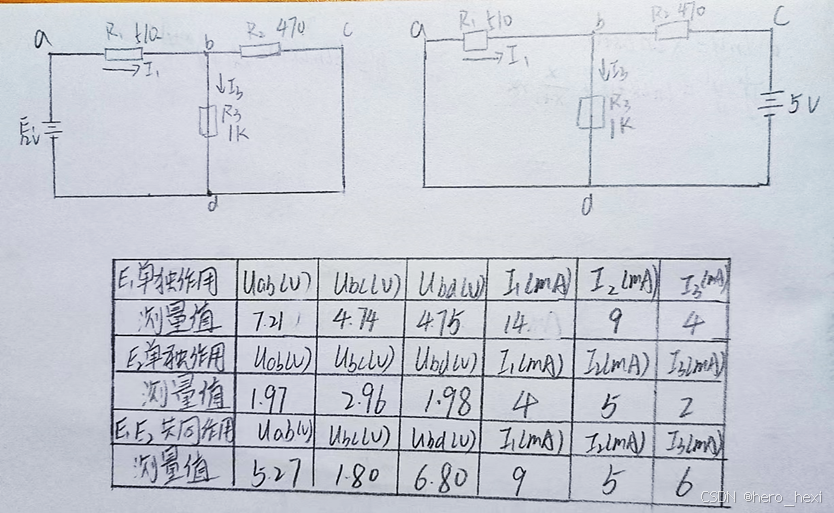 R₁ 510 R₂ 470
a b c
→ I₁ ↓ I₃
R₃
1K
12V
d
R₁ 510 R₂ 470
a b c
→ I₁ ↓ I₃
R₃
1K
5V
d
E₁单独作用 Uab(V) Ubc(V) Ubd(V) I₁(mA) I₂(mA) I₃(mA)
测量值 7.21 4.74 4.75 14. 9 4
E₂单独作用 Uab(V) Ubc(V) Ubd(V) I₁(mA) I₂(mA) I₃(mA)
测量值 1.97 2.96 1.98 4 5 2
E₁E₂共同作用 Uab(V) Ubc(V) Ubd(V) I₁(mA) I₂(mA) I₃(mA)
测量值 5.27 1.80 6.80 9 5 6
CSDN @hero_hexi